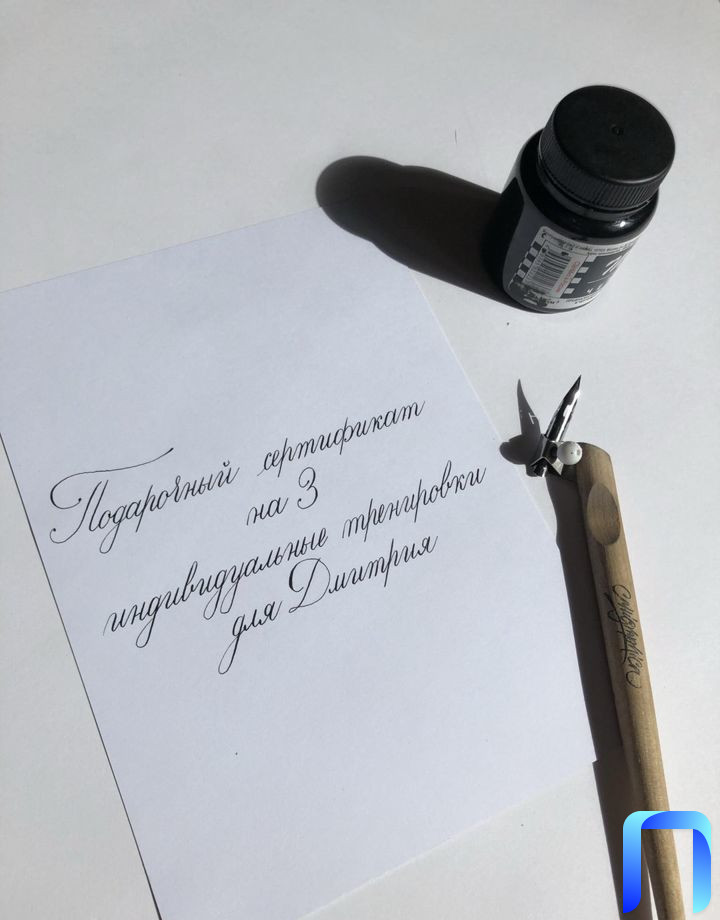 Подарочный сертификат
на 3
индивидуальные тренировки
для Дмитрия